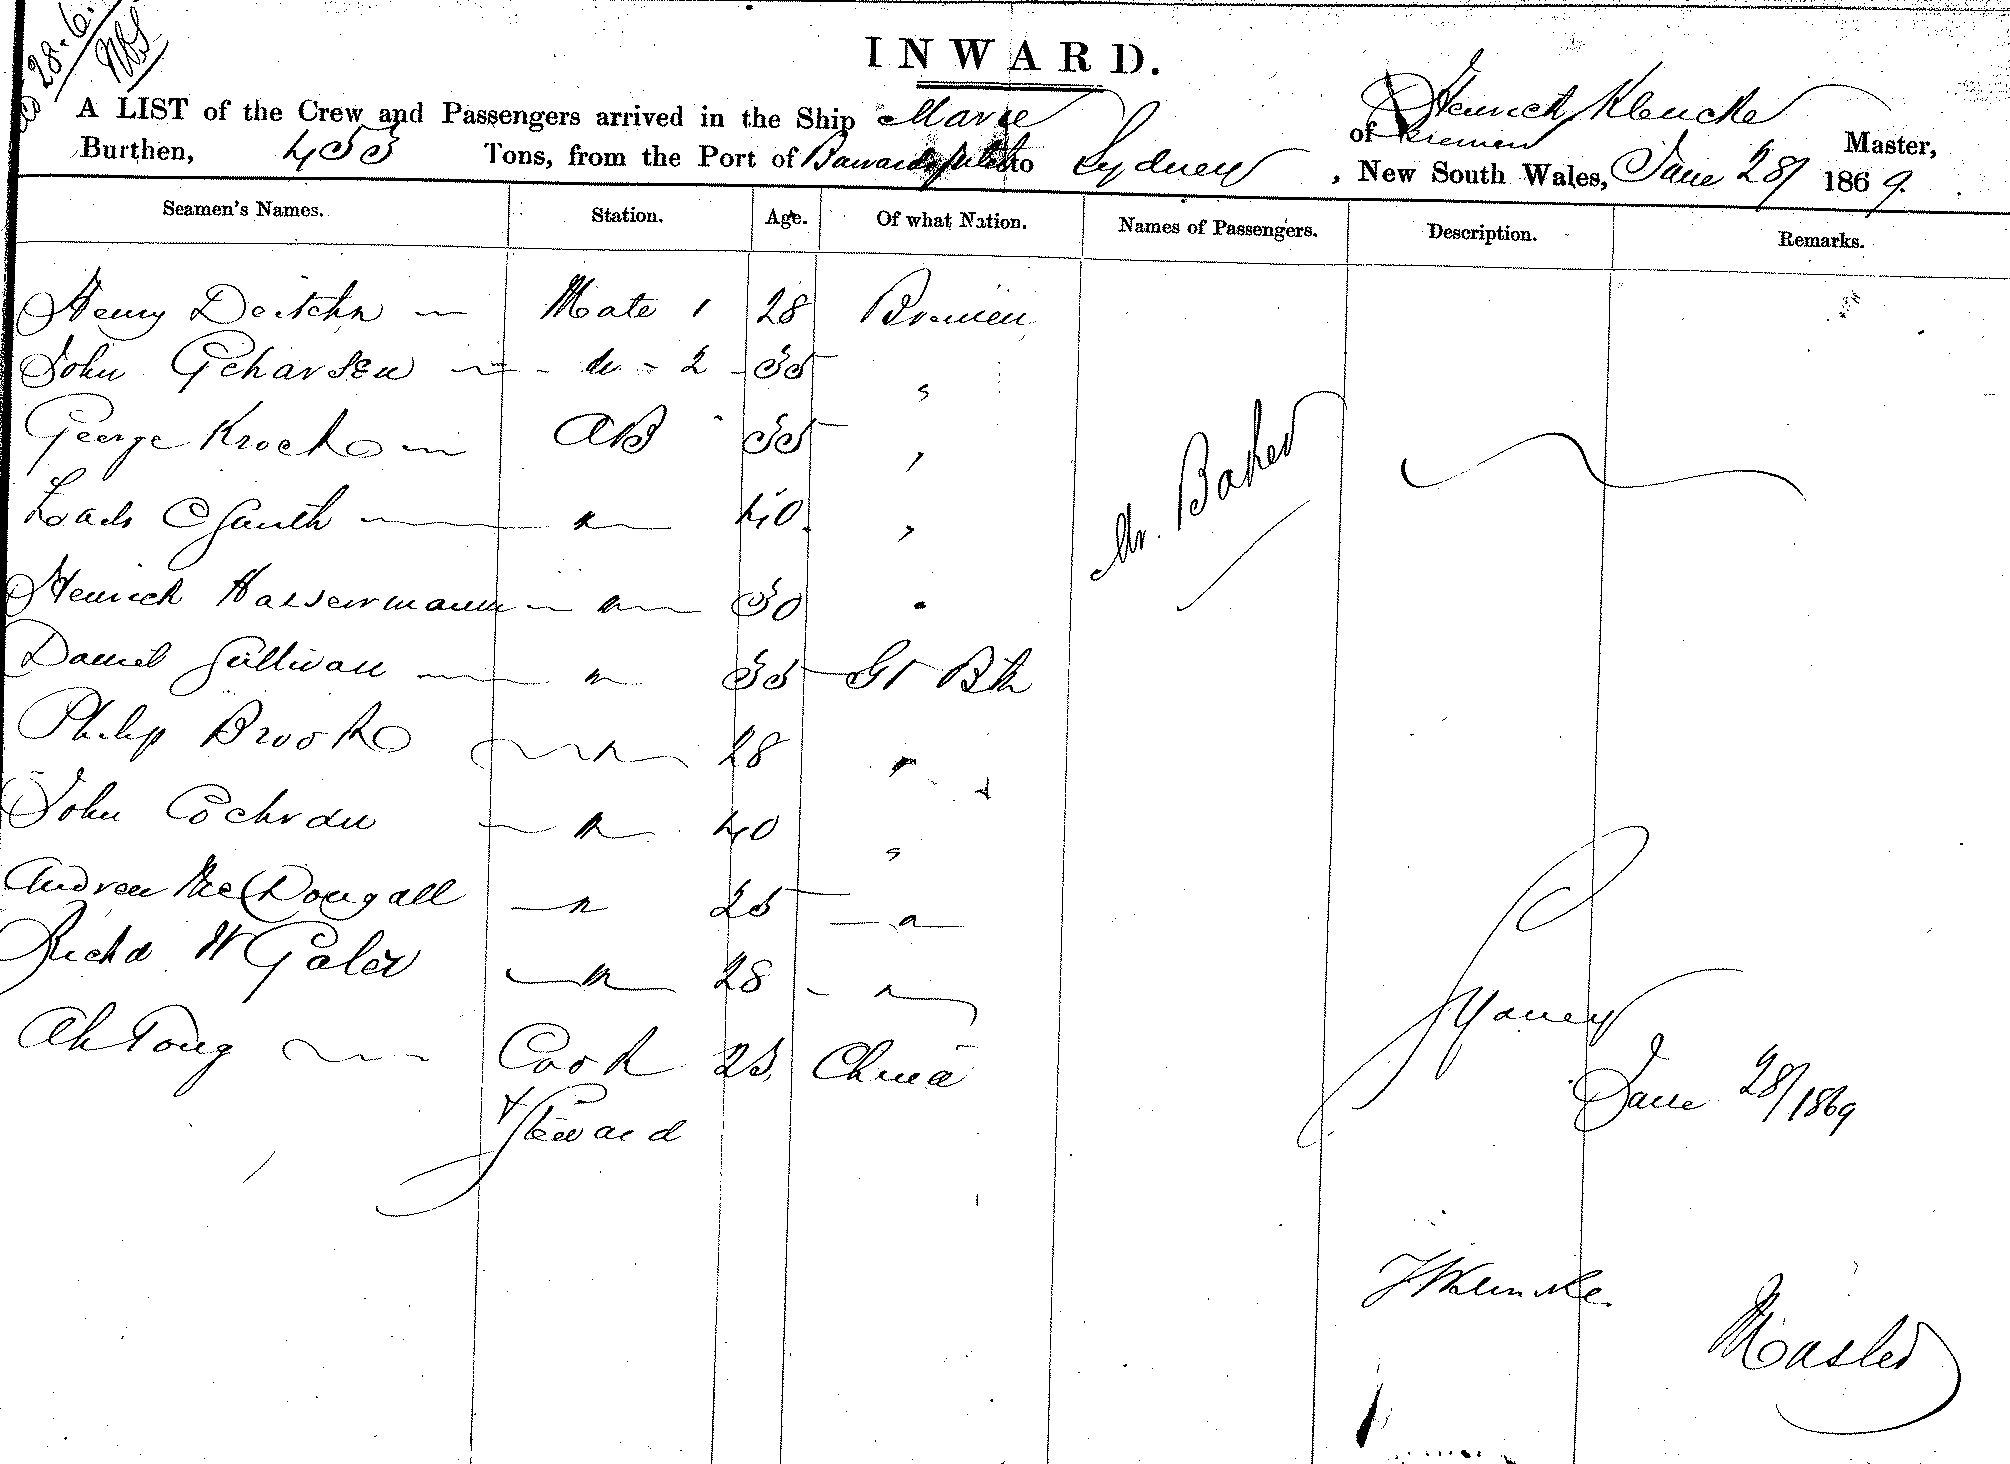 28.6.
INWARD.
A LIST of the Crew and Passengers arrived in the Ship Marie of Bremen Henrich Klencke Master,
Burthen, 433 Tons, from the Port of to Sydney, New South Wales, June 28/ 1869.
Seamen's Names. Station. Age. Of what Nation. Names of Passengers. Description. Remarks.
Henry Mate 1 28 Bremen
John Geharsen - do - 2 - 35 "
George Krock AB 35 "
40 "
Henrich Hassermann " 30 "
Mr. Baker
Daniel Sullivan " 35 Gt Btn
Philip Brook " 28 "
John Cochran " 40 "
Andrew MacDougall " 25 "
Richd W Galer " 28 "
Ah Tong Cook 23 China
& Steward
Sydney
June 28/1869
HKlencke
Master